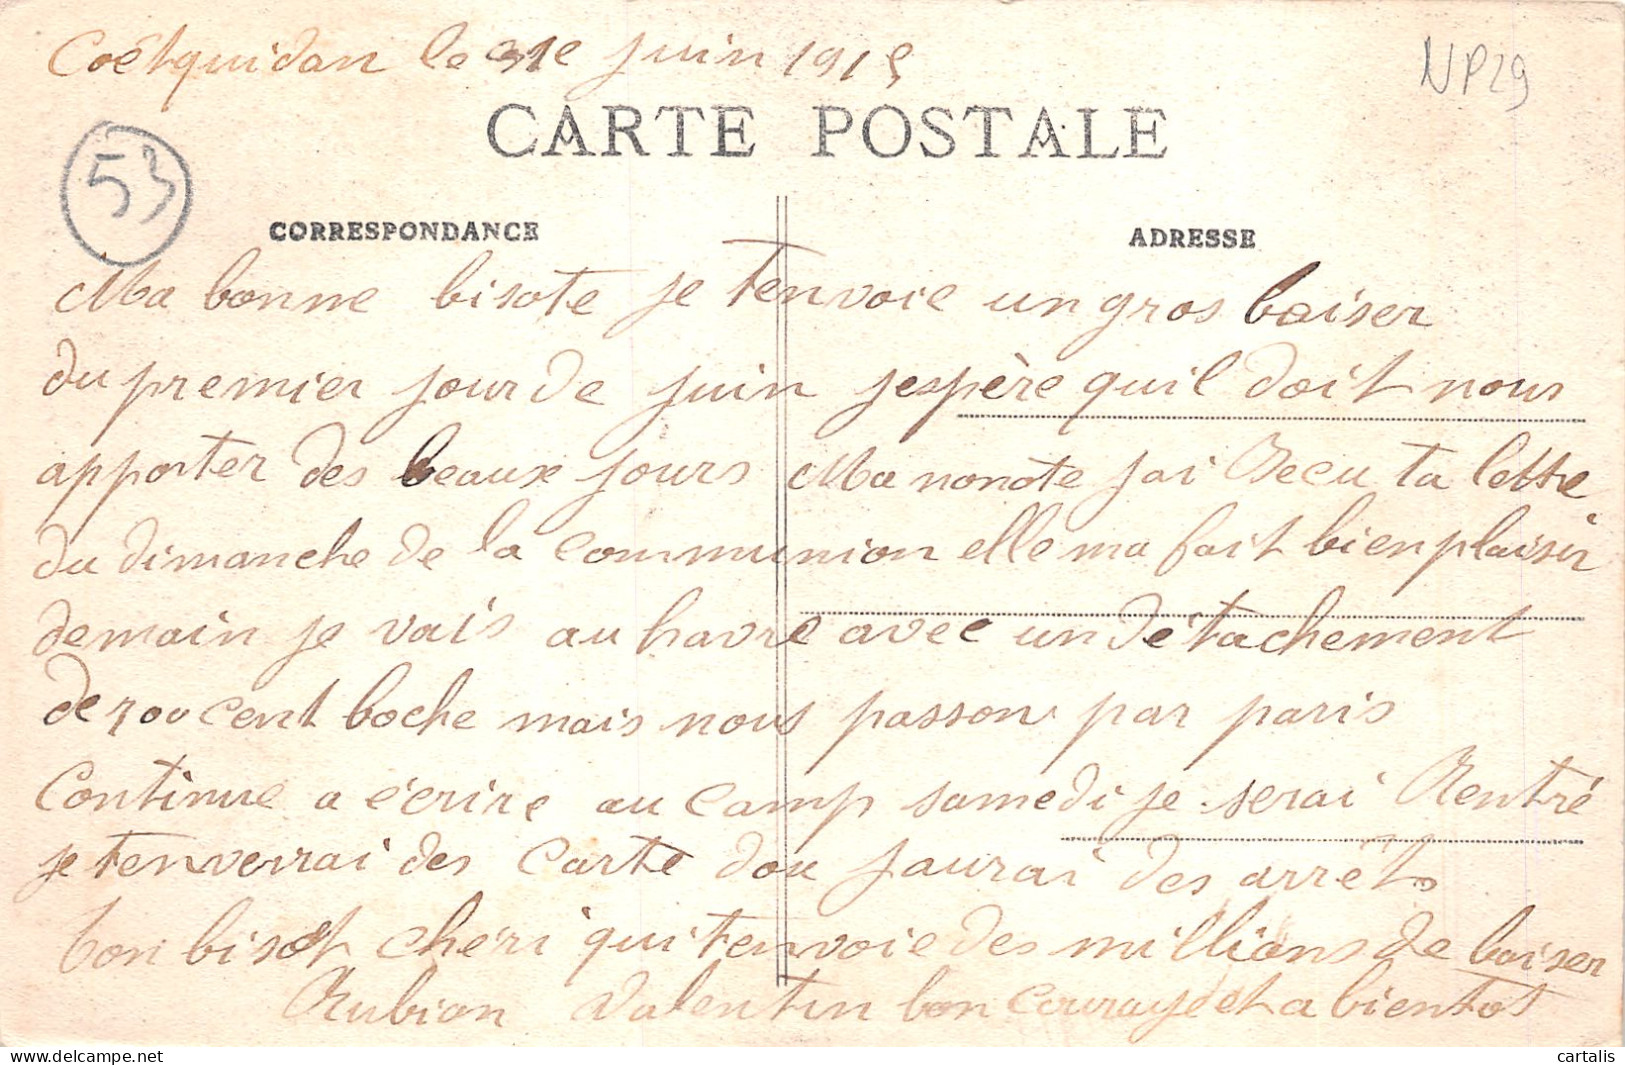 Coëtquidan le 31e juin 1915
NP29
CARTE POSTALE
53
CORRESPONDANCE
ADRESSE
Ma bonne bisote je tenvoie un gros baiser
du premier jour de juin jespère quil doit nous
apporter des beaux jours Ma nonote jai Recu ta lettre
du dimanche de la communion elle ma fait bien plaisir
demain je vais au havre avec un détachement
de cent boche mais nous passon par paris
Continue a écrire au camp samedi je serai Rentré
je tenverrai des carte dou jaurai des arrêts
ton bisot chéri qui tenvoie des millions de baiser
Rubion Valentin bon courage et a bientot
cartalis